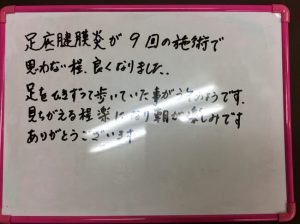 足底腱膜炎が9回の施術で
思わない程、良くなりました。
足をひきずって歩いていた事がうそのようです。
見ちがえる程楽になり朝が楽しみです
ありがとうございます